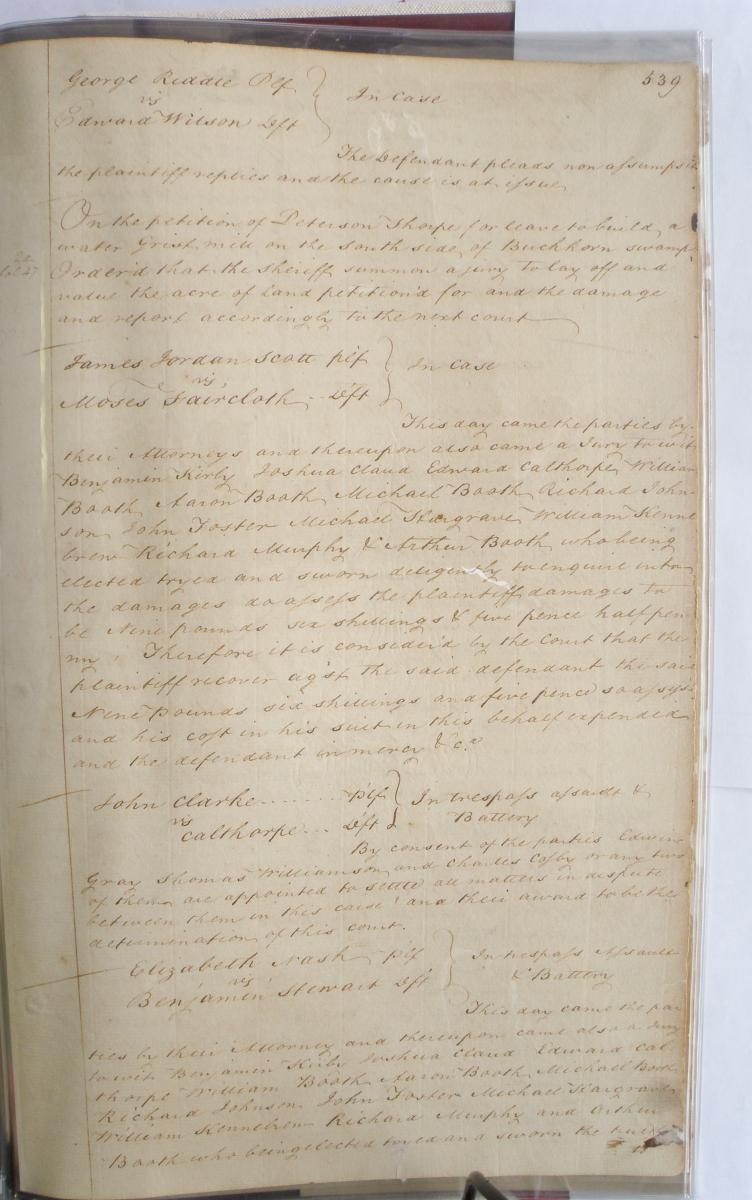 539
George Riddle Plf
vs
Edward Wilson Deft
In Case
The Defendant pleads non assumpsit
the plaintiff replies and the cause is at issue
On the petition of Peterson Thorpe for leave to build a
water Grist mill on the south side of Buckhorn swamp
Order'd that the sheriff summon a jury to lay off and
value the acre of Land petition'd for and the damage
and report accordingly to the next court
James Jordan Scott plf
vs
Moses Faircloth .. Deft
In Case
This day came the parties by
their Attorneys and thereupon also came a Jury to wit
Benjamin Kirby Joshua Claud Edward Calthorpe William
Booth Aaron Booth Michael Booth Richard John
son John Foster Michael Hargrave William Kenne
brew Richard Murphy & Arthur Booth who being
elected tryed and sworn diligently to enquire into
the damages do assess the plaintiff damages to
be Nine pounds six shillings & five pence half pen
ny! Therefore it is consider'd by the Court that the
plaintiff recover ag'st the said defendant the said
Nine Pounds six shillings and five pence so assess'd
and his cost in his suit in this behalf expended
and the defendant in mercy &c.a
John Clarke ....... plf
vs
Calthorpe ... Deft
In trespass assault &
Battery
By consent of the parties Edwin
Gray Thomas Williamson and Charles Cosby or any two
of them are appointed to settle all matters in dispute
between them in this cause! and their award to be the
determination of this court.
Elizabeth Nash plf
vs
Benjamin Stewart Deft
In trespass Assault
& Battery
This day came the par
ties by their Attorney and thereupon came also a Jury
to wit Benjamin Kirby Joshua Claud Edward Cal
thorpe William Booth Aaron Booth Michael Booth
Richard Johnson John Foster Michael Hargrave
William Kennebrew Richard Murphy and Arthur
Booth who being elected tryed and sworn the truth